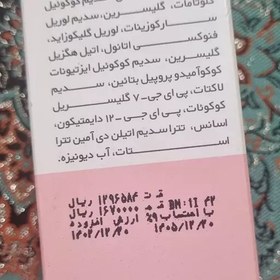 گلوتامات، گلیسرین، سدیم کوکونیل
سارکوزینات، لوریل گلیکوزاید،
فنوکسی اتانول، اتیل هگزیل
گلیسرین، سدیم کوکونیل ایزتیونات
کوکوآمیدو پروپیل بتائین، سدیم
لاکتات، پی ای جی-۷ گلیسریل
کوکوئات، پی ای جی-۱۲ دایمتیکون،
اسانس، تترا سدیم اتیلن دی آمین تترا
استات، آب دیونیزه.
ق ت ۱۲۹۶۵۸۴ ریال
BN:11 ۴۲ ق م ۱۶۷۰۰۰۰ ریال
با احتساب ۲۹ ارزش افزوده
۱۴۰۵/۱۲/۲۰ ۱۴۰۲/۱۲/۲۰